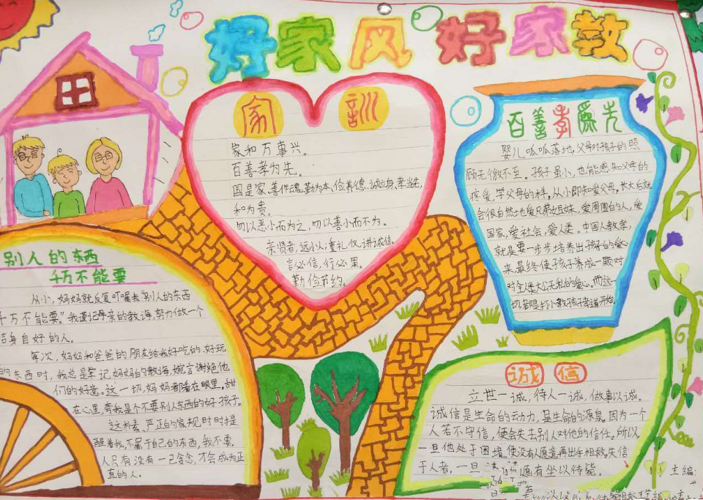 好家风 好家教
家 訓
家和万事兴。
百善孝为先。
国是家,善作魂,勤为本,俭养德,诚立身,孝当先,
和为贵。
勿以恶小而为之,勿以善小而不为。
亲贤者,远小人,重礼仪,讲诚信。
言必信,行必果。
勤俭节约。
百善孝為先
婴儿呱呱落地,父母对孩子的照
顾无微不至。孩子虽小,也能感知父母的
疼爱,学父母的样,从小即知爱父母,长大后就
会很自然地爱兄弟姐妹、爱周围的人,爱
国家,爱社会,爱人类。中国人教孝,
就是要一步步培养出孩子的爱心
来,最终使孩子养成一颗对
对全体大公无私的爱心。而这一
切是从
别人的东西
千万不能要
从小,妈妈就反复叮嘱我"别人的东西
千万不能要。"我谨记母亲的教诲,努力做一个
洁身自好的人。
每次,妈妈和爸爸的朋友给我好吃的、好玩
的东西时,我总是牢记妈妈的教诲,婉言谢绝他
们的好意。这一切,妈妈都看在眼里,甜
在心里,夸我是个不要别人东西的好孩子。
这就是严正的家规,时时提
醒着我,不属于自己的东西,我不要。
人只有没有一己贪念,才会成为正
真的人。
诚 信
立世一诚,待人一诚,做事以诚。
诚信是生命的动力,是生命的源泉。因为一个
人若不守信,便会失去别人对他的信任。所以
一旦他处于困境,便没有人愿意再出手相救。失信
于人者,一旦遇有坐以待毙。
主编: